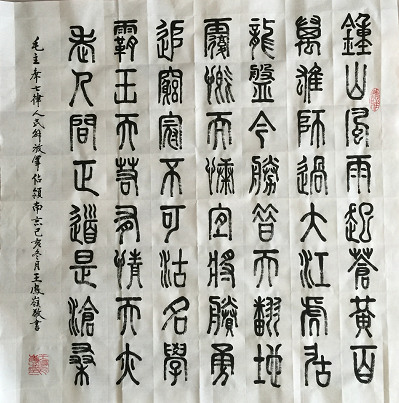 鍾山風雨起蒼黃百
萬雄師過大江虎居
龍盤今勝昔天翻地
覆慨而慷宜將賸勇
追窮寇不可沽名學
霸王天若有情天亦
老人間正道是滄桑
毛主席七律人民解放軍佔領南京己亥冬月王慶嶺敬書